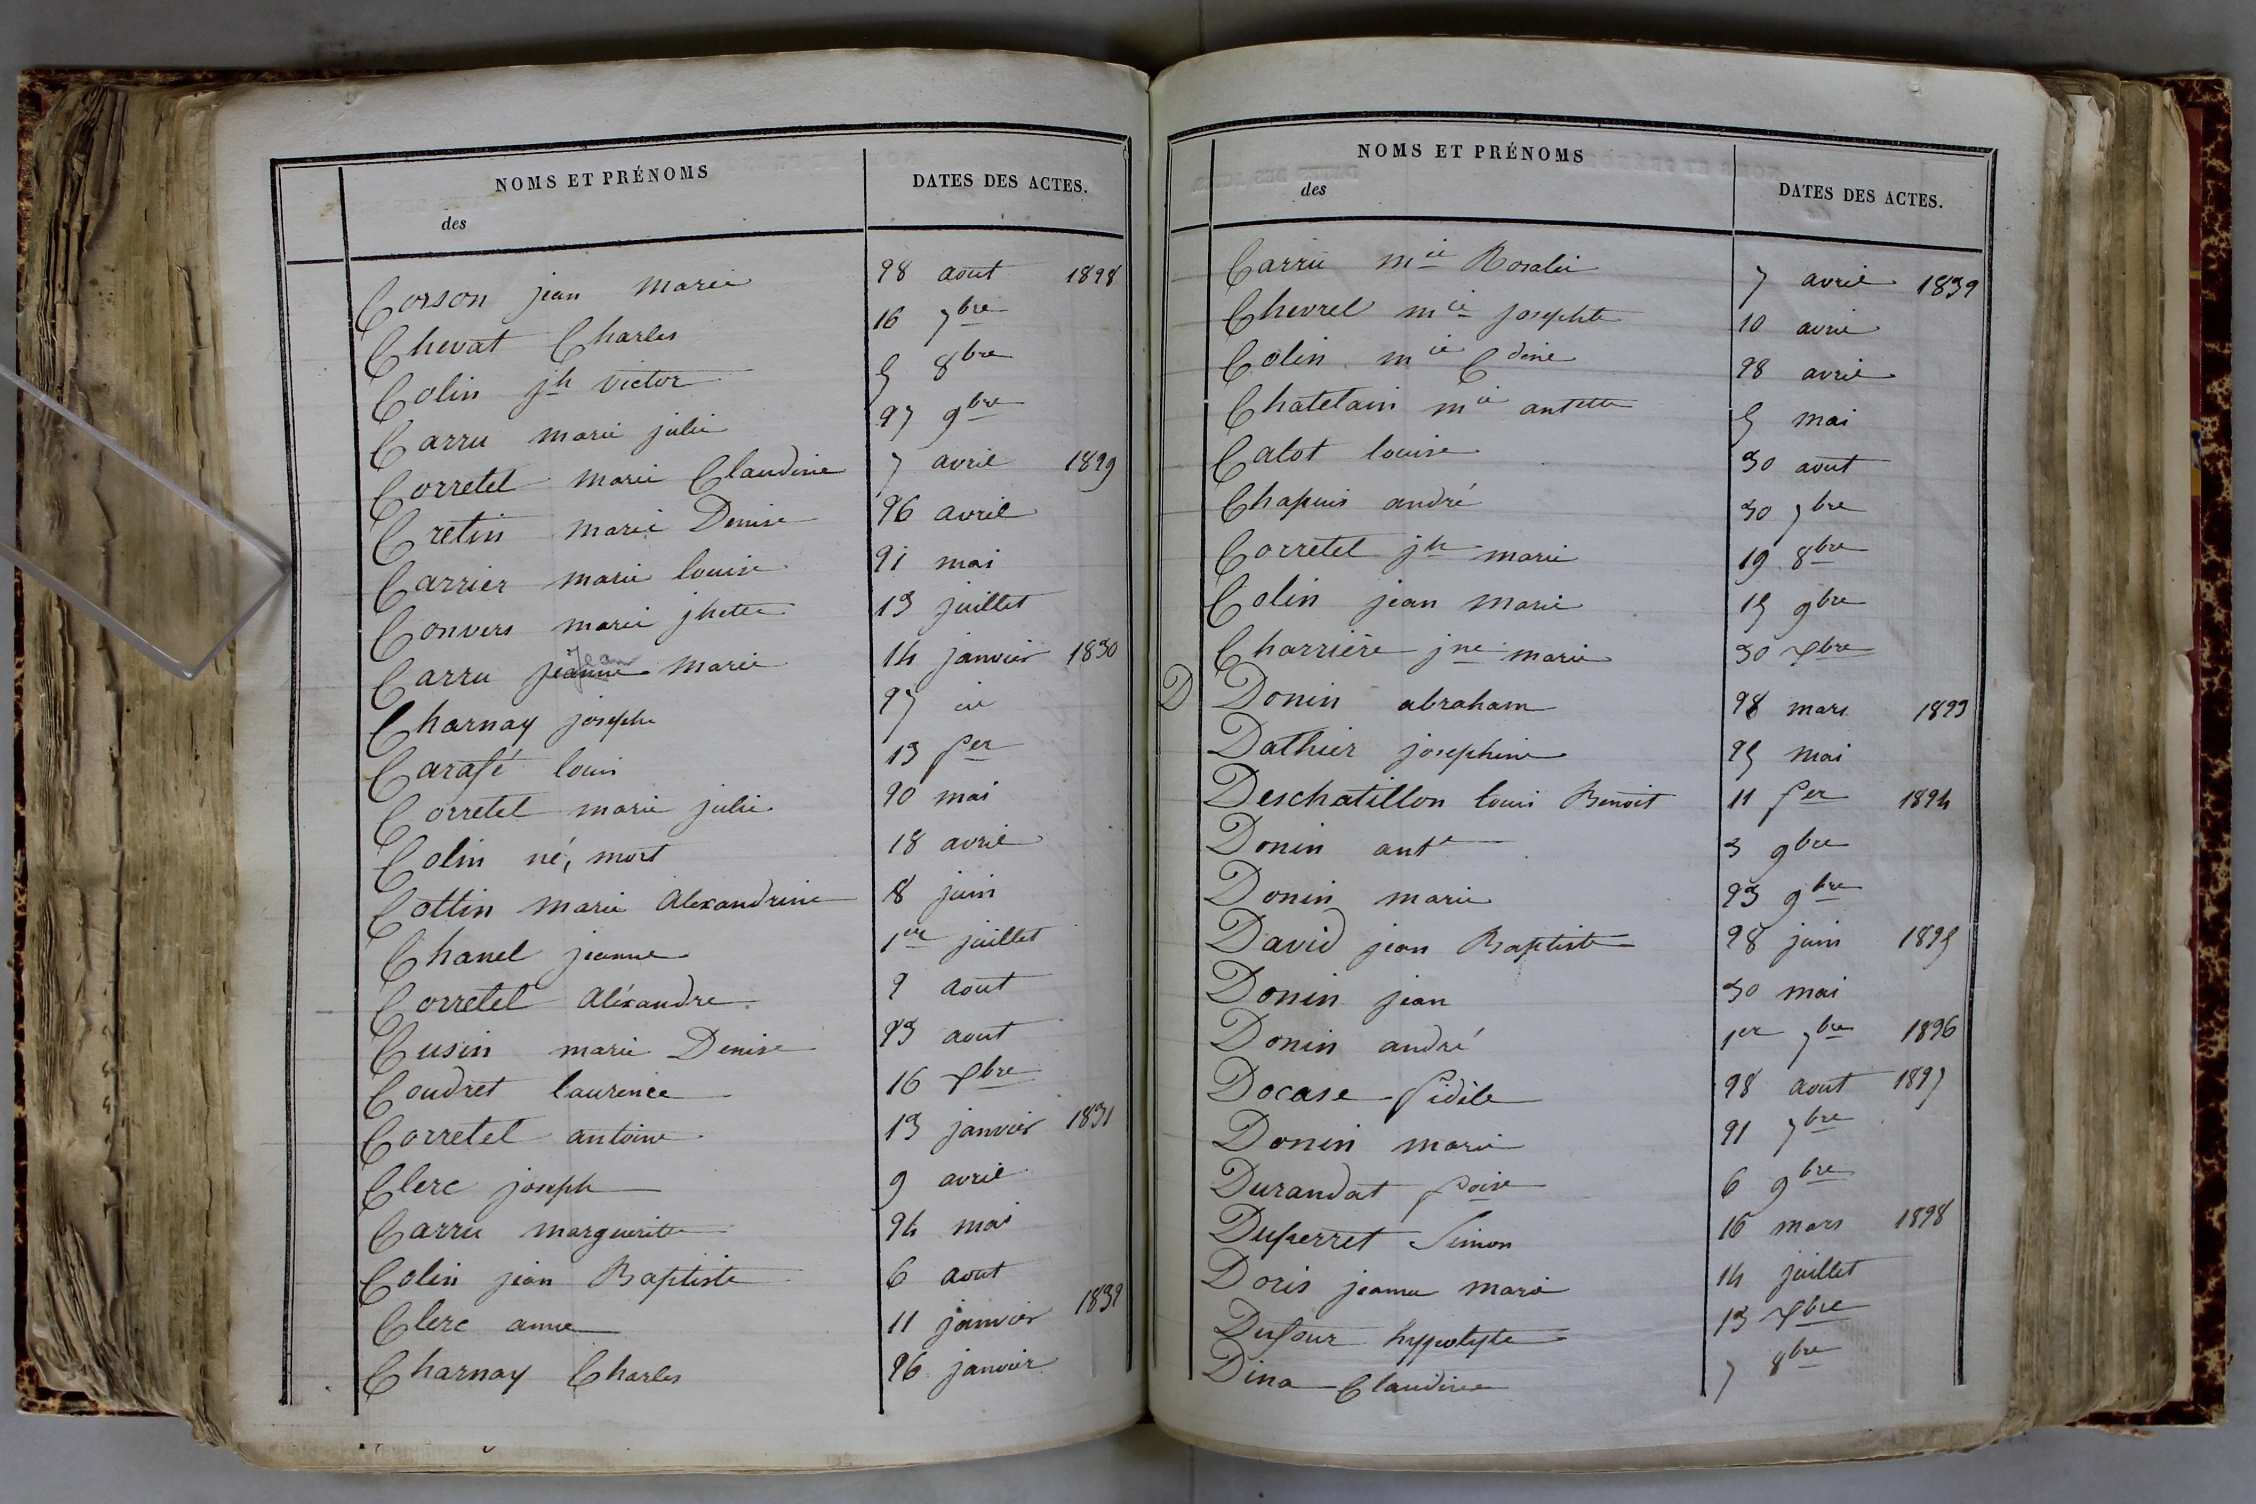 NOMS ET PRÉNOMS
des
DATES DES ACTES.
Corson jean marie 28 aout 1828
Chevat Charles 16 7bre
Colin jh victor 5 8bre
Carru marie julie 27 9bre
Corretel marie Claudine 7 avril 1829
Cretin marie Denise 26 avril
Carrier marie louise 21 mai
Convers marie jhette 13 juillet
Carru jeanne Jean marie 14 janvier 1830
Charnay joseph 27 id
Carafé louis 13 fer
Corretel marie julie 20 mai
Colin né, mort 18 avril
Cottin marie Alexandrine 8 juin
Chanel jeanne 1er juillet
Corretel Aléxandre 2 aout
Cusin marie Denise 23 aout
Coudret laurence 16 xbre
Corretel antoine 13 janvier 1831
Clerc joseph 9 avril
Carru marguerite 24 mai
Colin jean Baptiste 6 aout
Clerc anne 11 janvier 1832
Charnay Charles 26 janvier
NOMS ET PRÉNOMS
des
DATES DES ACTES.
Carru mie Rosalie 7 avril 1832
Chevrel mie josephte 10 avril
Colin mie Cdine 28 avril
Chatelain mie antette 5 mai
Catot louise 30 aout
Chapuis andré 30 7bre
Corretel jh marie 19 8bre
Colin jean marie 15 9bre
Charrière jne marie 30 xbre
D Donin abraham 28 mars 1823
Dathier josephine 25 mai
Deschatillon louis Benoit 11 fer 1824
Donin ante 3 9bre
Donin marie 23 9bre
David jean Baptiste 28 juin 1825
Donin jean 30 mai
Donin andré 1er 7bre 1826
Docase fidèle 28 aout 1827
Donin marie 21 7bre
Durandat foise 6 9bre
Duperret Simon 16 mars 1828
Doris jeanne marie 14 juillet
Dufour hyppolyte 13 xbre
Dina Claudine 7 8bre